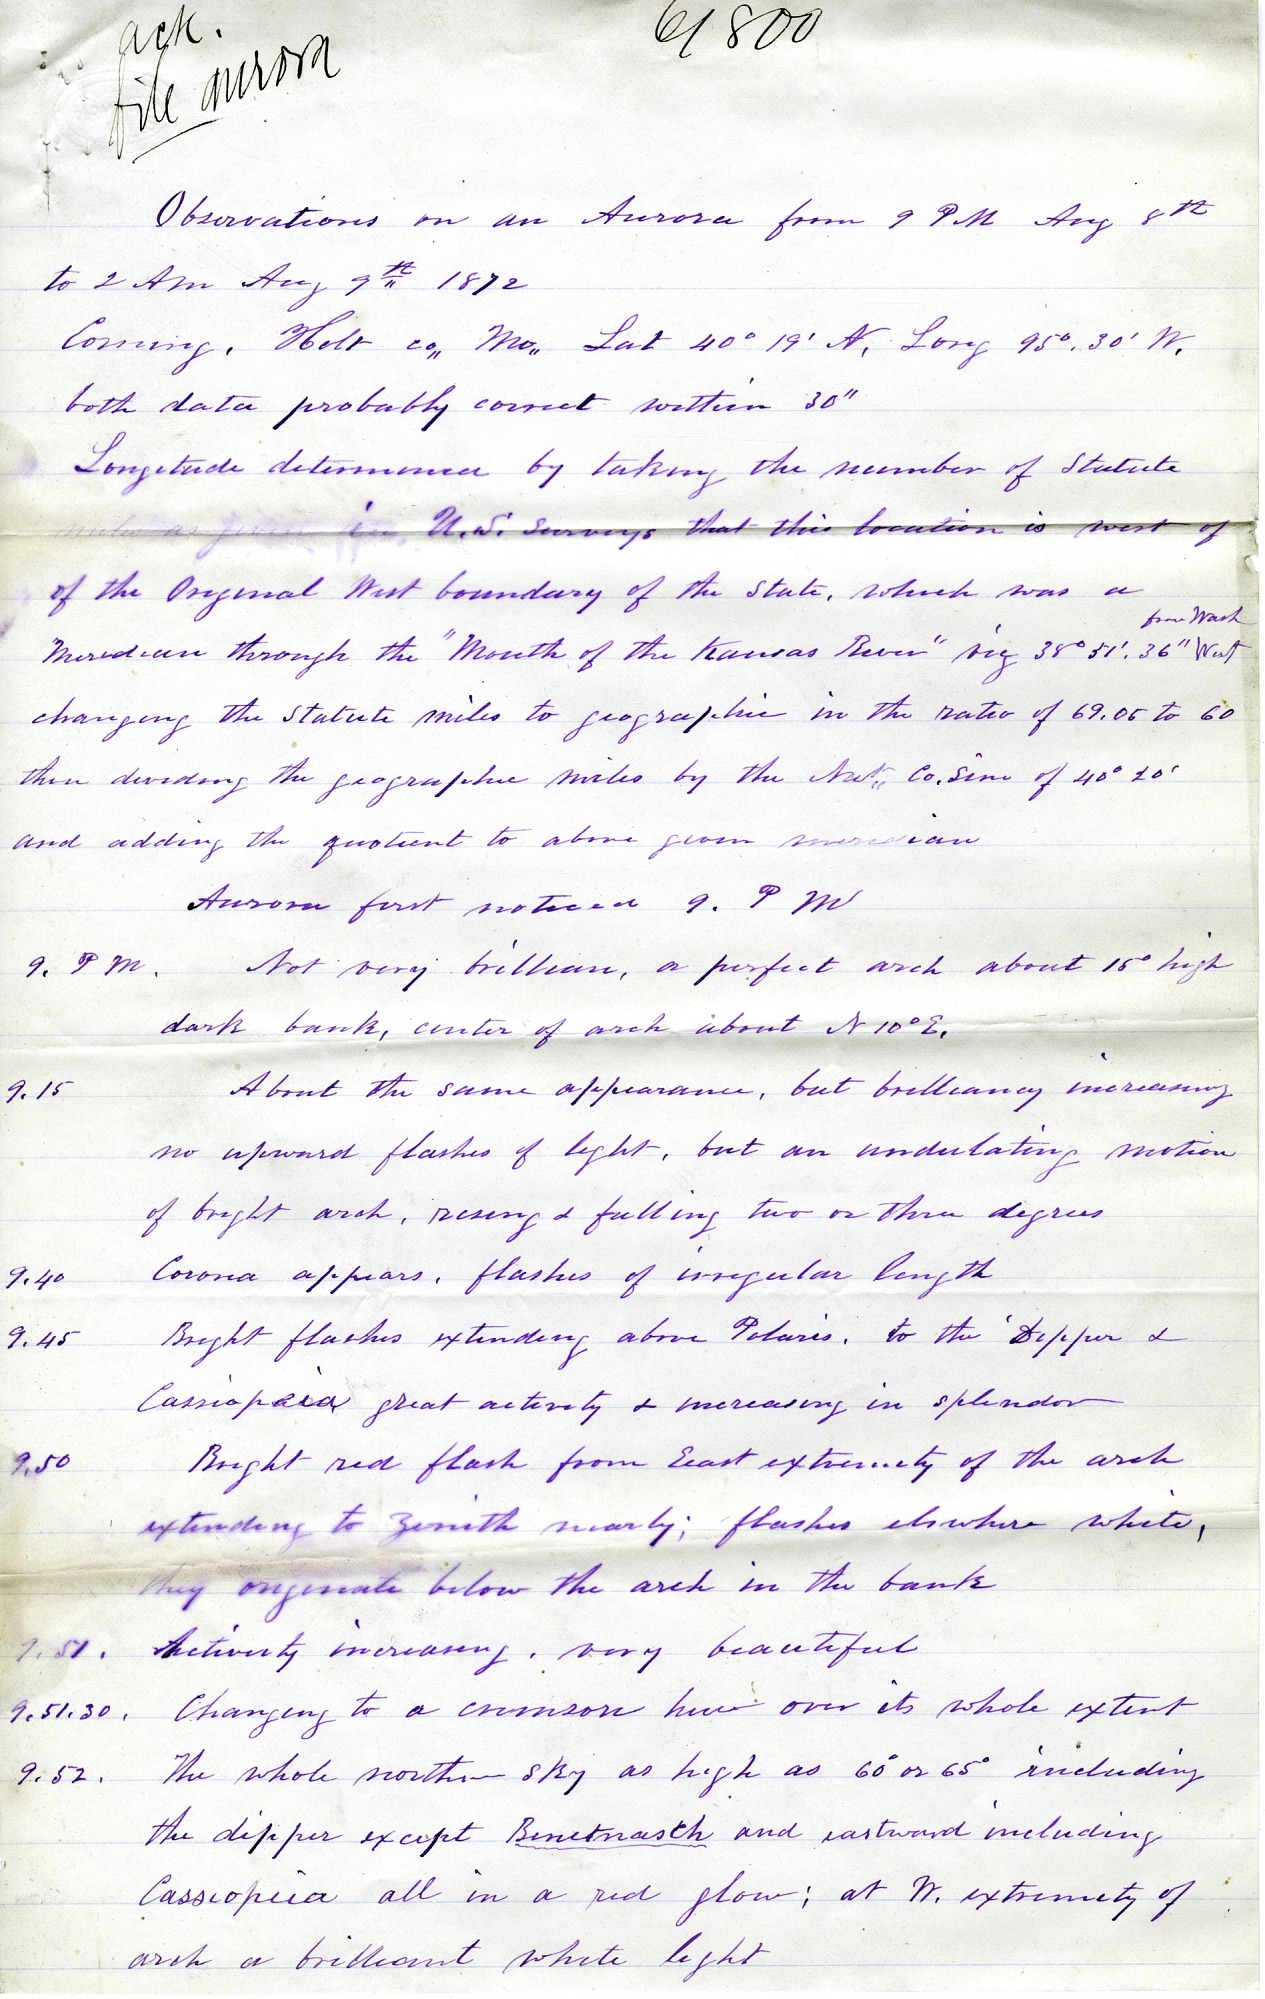 ack.
file aurora
61800
Observations on an Aurora from 9 PM Aug 8th
to 2 Am Aug 9th 1872
Corning, Holt co,, Mo,, Lat 40° 19' N, Long 95°. 30' W.
both data probably correct within 30"
Longitude determined by taking the number of Statute
miles as given in U.S. Surveys that this location is west of
of the Original West boundary of the State, which was a
from Wash
Meridian through the "Mouth of the Kansas River" viz 38° 51'. 36" West
changing the Statute miles to geographic in the ratio of 69.05 to 60
then dividing the geographic miles by the Nat,, Co. Sine of 40° 20'
and adding the quotient to above given meridian
Aurora first noticed 9. P M
9. P M. Not very brillian, a perfect arch about 15° high
dark bank, center of arch about N 10° E.
9.15 About the same appearance, but brilliancy increasing
no upward flashes of light, but an undulating motion
of bright arch, rising & falling two or three degrees
9.40 Corona appears, flashes of irregular length
9.45 Bright flashes extending above Polaris, to the Dipper &
Cassiopaeia great activity & increasing in splendor
9.50 Bright red flash from East extremity of the arch
extending to Zenith nearly; flashes elswhere white,
they originate below the arch in the bank
9.51. Activity increasing, very beautiful
9.51.30. Changing to a crimson hue over its whole extent
9.52. The whole northern sky as high as 60° or 65° including
the dipper except Benetnasch and eastward including
Cassiopeia all in a red glow; at W. extremity of
arch a brilliant white light